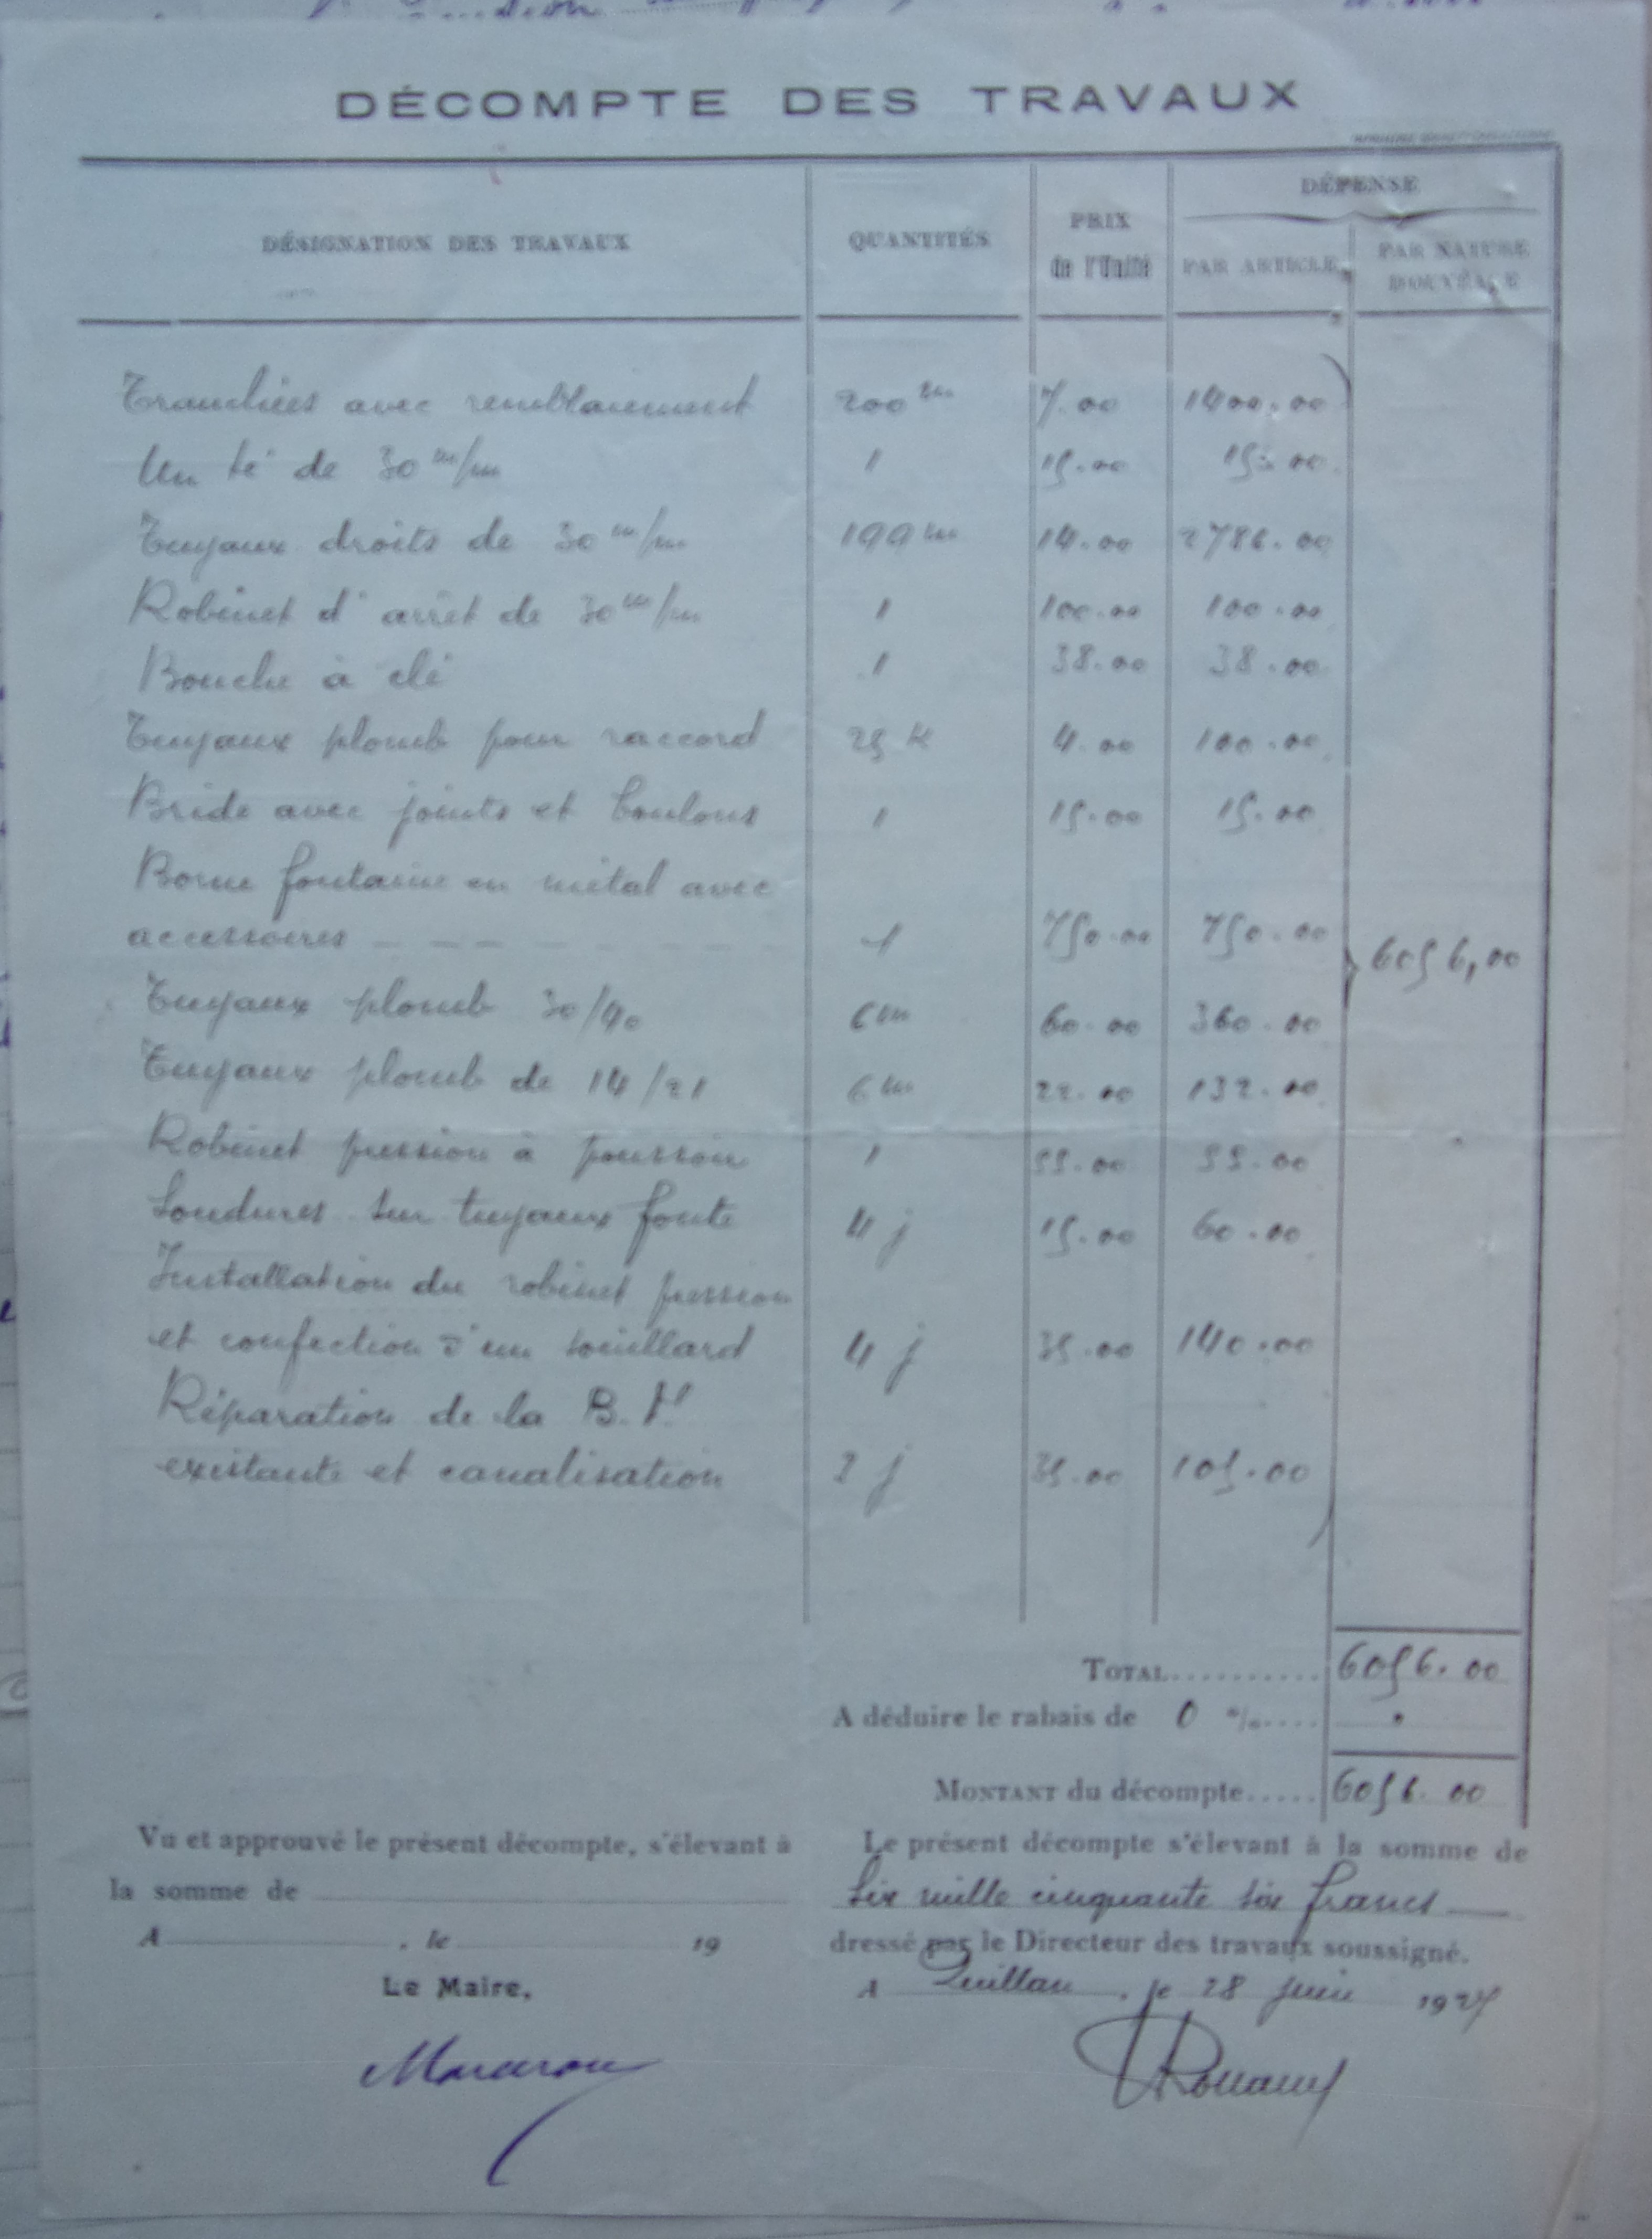 DÉCOMPTE DES TRAVAUX
DÉSIGNATION DES TRAVAUX
QUANTITÉS
PRIX
de l'Unité
DÉPENSE
PAR ARTICLE
PAR NATURE
D'OUVRAGE
Tranchées avec remblaiement 200 m 7.00 1400.00
Un té de 30 m/m 1 15.00 15.00
Tuyaux droits de 30 m/m 199 m 14.00 2786.00
Robinet d'arrêt de 30 m/m 1 100.00 100.00
Bouche à clé 1 38.00 38.00
Tuyaux plomb pour raccord 25 K 4.00 100.00
Bride avec joints et boulons 1 15.00 15.00
Borne fontaine en métal avec
accessoires 1 750.00 750.00 6056,00
Tuyaux plomb 30/40 6 m 60.00 360.00
Tuyaux plomb de 14/21 6 m 22.00 132.00
Robinet pression à poussoir 1 55.00 55.00
Soudures sur tuyaux fonte 4 j 15.00 60.00
Installation du robinet pression
et confection d'un souillard 4 j 35.00 140.00
Réparation de la B.F
existante et canalisation 3 j 35.00 105.00
TOTAL.......... 6056.00
A déduire le rabais de 0 %.... "
MONTANT du décompte..... 6056.00
Vu et approuvé le présent décompte, s'élevant à
la somme de
A , le 19
Le Maire,
Le présent décompte s'élevant à la somme de
Six mille cinquante six francs
dressé par le Directeur des travaux soussigné.
A Quillan, le 28 juin 1927